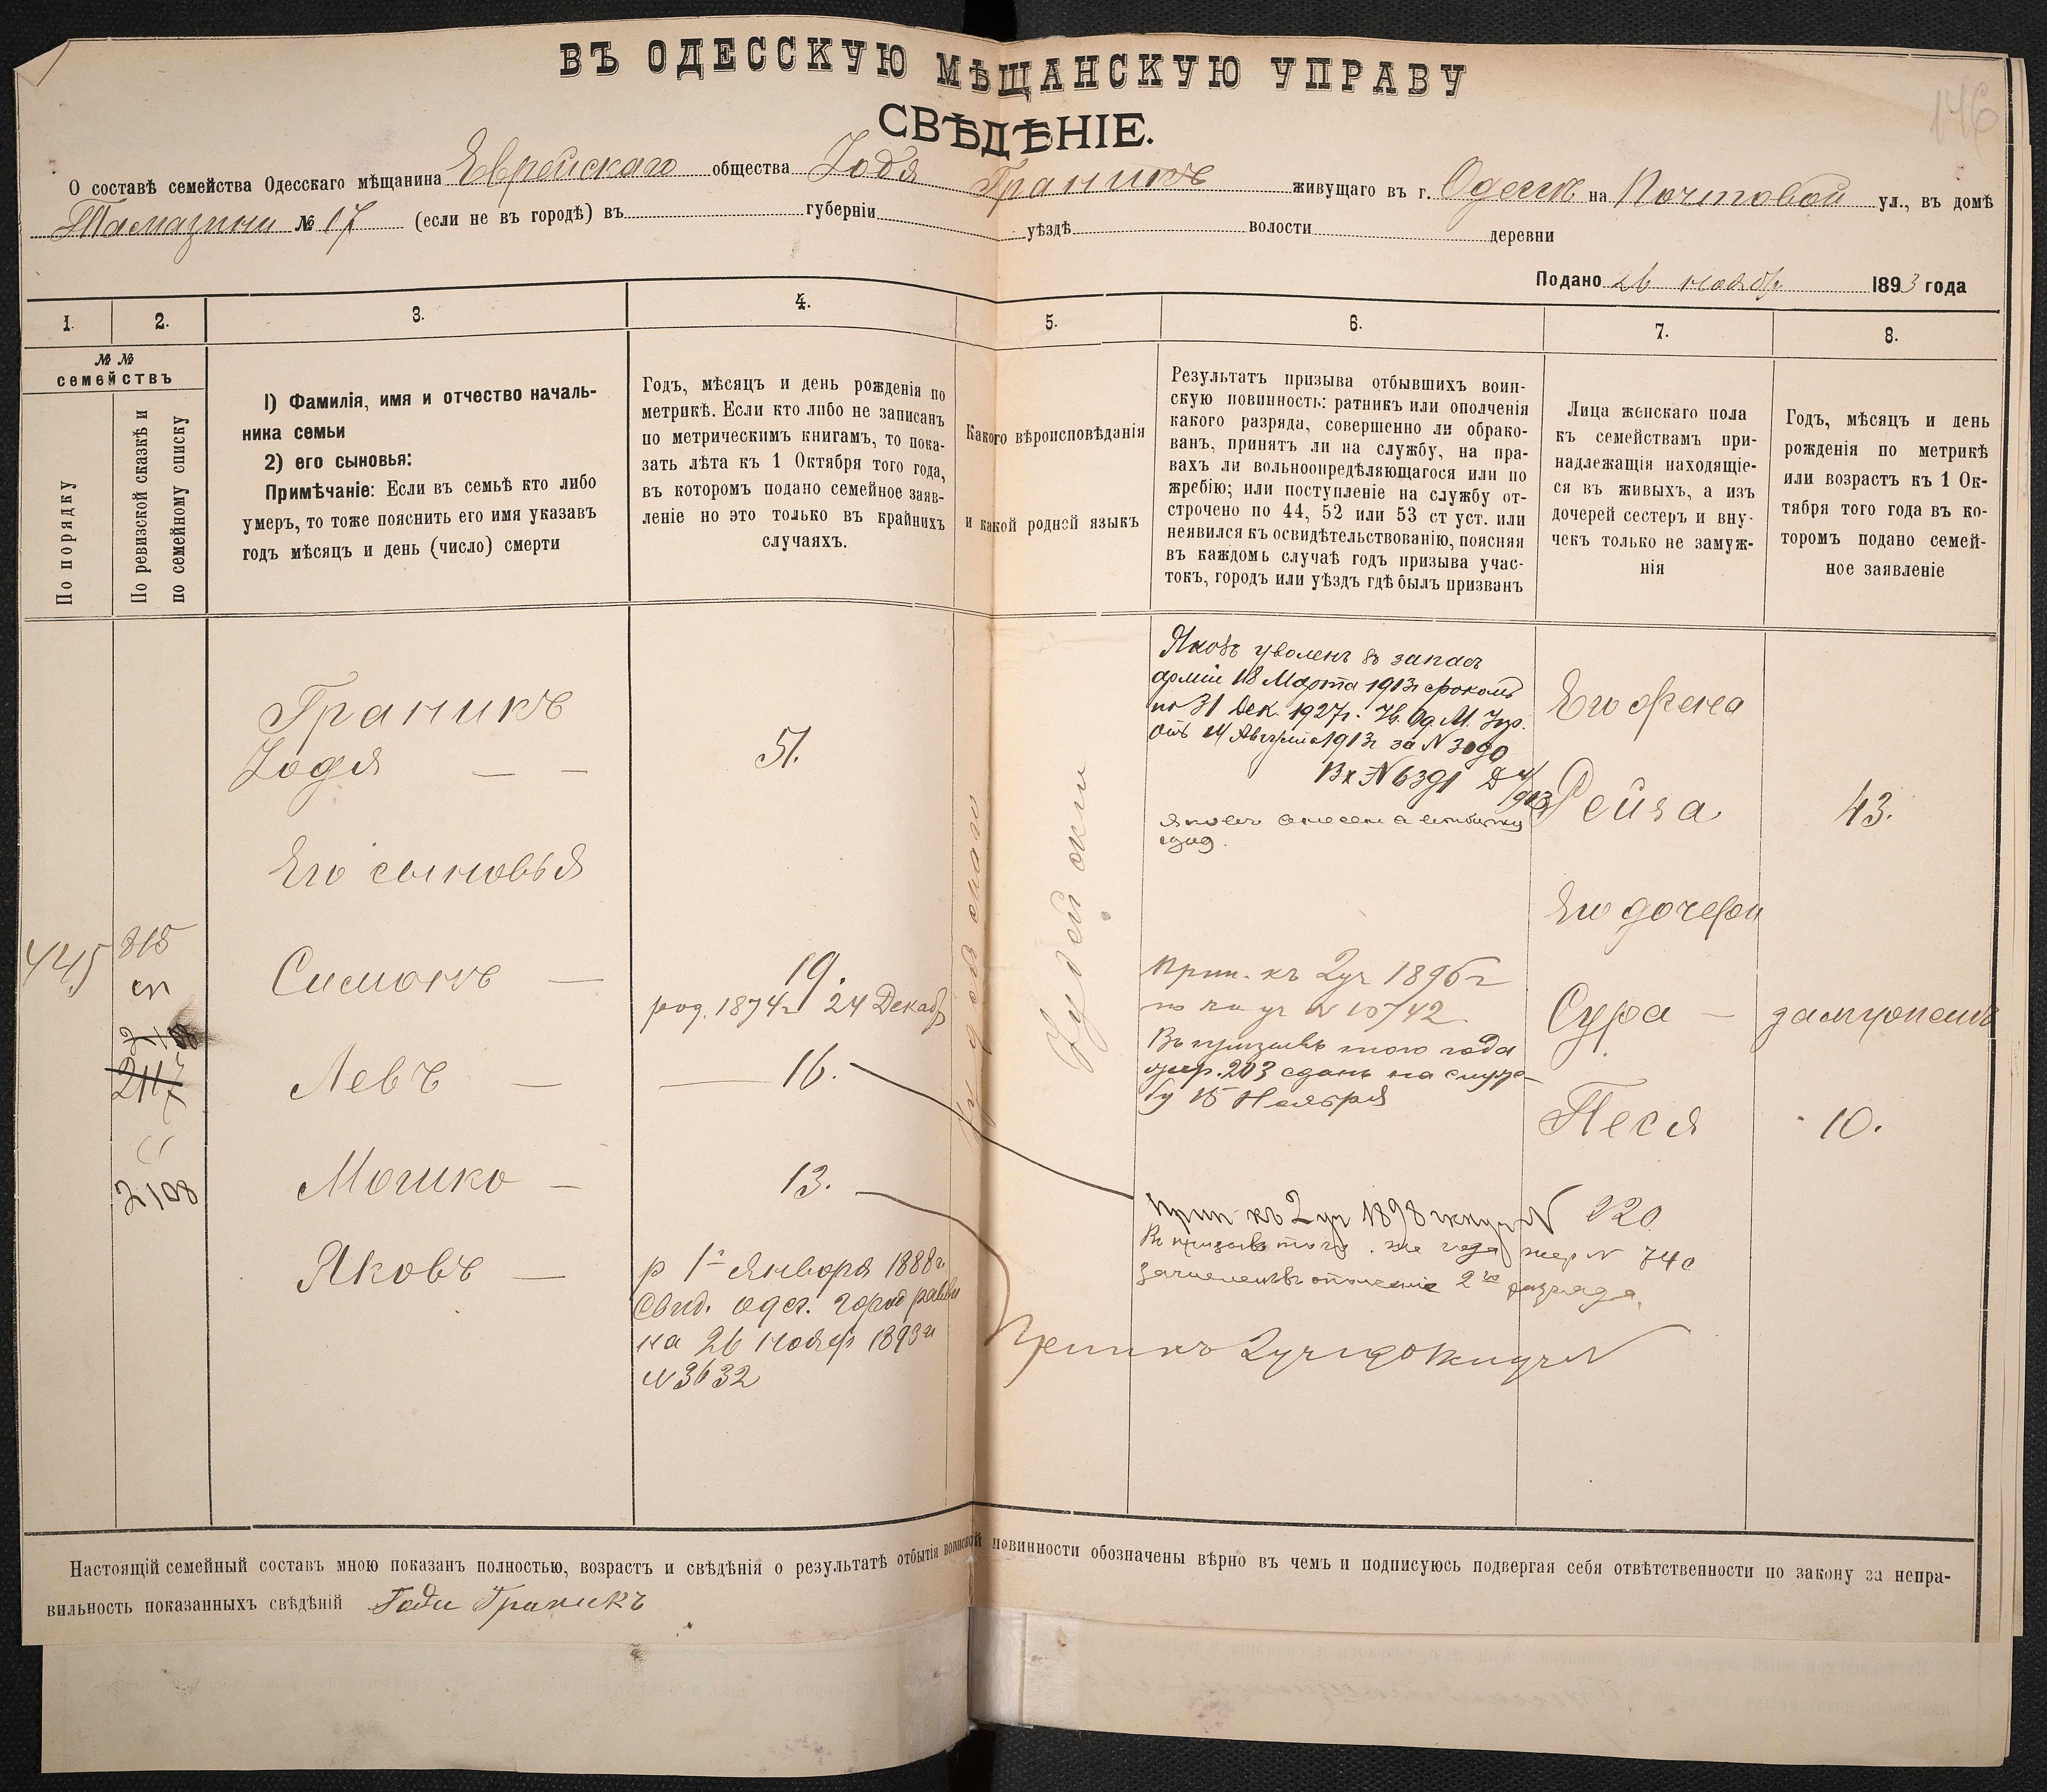 146
ВЪ ОДЕССКУЮ МѢЩАНСКУЮ УПРАВУ
СВѢДѢНІЕ.
О составѣ семейства Одесскаго мѣщанина Еврейскаго общества Іодя Граникъ живущаго въ г. Одессѣ на Почтовой ул., въ домѣ
№ 17 (если не въ городѣ) въ губерніи уѣздѣ волости деревни
Подано 26 ноябр 1893 года
1. 2. 3. 4. 5. 6. 7. 8.
№ №
семействъ
По порядку
По ревизской сказкѣ и
по семейному списку
1) Фамилія, имя и отчество началь-
ника семьи
2) его сыновья:
Примѣчаніе: Если въ семьѣ кто либо
умеръ, то тоже пояснить его имя указавъ
годъ мѣсяцъ и день (число) смерти
Годъ, мѣсяцъ и день рожденія по
метрикѣ. Если кто либо не записанъ
по метрическимъ книгамъ, то пока-
зать лѣта къ 1 Октября того года,
въ которомъ подано семейное заяв-
леніе но это только въ крайнихъ
случаяхъ.
Какого вѣроисповѣданія
и какой родной языкъ
Результатъ призыва отбывшихъ воин-
скую повинность: ратникъ или ополченія
какого разряда, совершенно ли обрако-
ванъ, принятъ ли на службу, на пра-
вахъ ли вольноопредѣляющагося или по
жребію; или поступленіе на службу от-
строчено по 44, 52 или 53 ст уст. или
неявился къ освидѣтельствованію, поясняя
въ каждомъ случаѣ годъ призыва учас-
токъ, городъ или уѣздъ гдѣ былъ призванъ
Лица женскаго пола
къ семействамъ при-
надлежащія находящіе-
ся въ живыхъ, а изъ
дочерей сестеръ и вну-
чекъ только не замуж-
нія
Годъ, мѣсяцъ и день
рожденія по метрикѣ
или возрастъ къ 1 Ок-
тября того года въ ко-
торомъ подано семей-
ное заявленіе
445
315
сп
2117
2108
Граникъ
Іодя — —
51.
Его сыновья
Симонъ —
19.
род. 1874 г 24 Декаб
Левъ —
— 16.
Мошко —
13.
Яковъ —
р 1го Января 1888 г.
Свид. одес. город равви
на 26 ноябр 1893 г
№ 3632
Іудейскаго
Яковъ уволенъ въ запасъ
арміи 18 Марта 1913 г срокомъ
по 31 Дек. 1927 г. Ув. Од. М. Упр.
отъ 14 Августа 1913 г за № 3090
Вх № 6391
Прип. къ 2 уч 1896 г
№ 1042
Въ призывъ того года
жер. 203 сданъ на служ-
бу 15 Ноября
Прип къ 2 уч 1898 г № 220
Въ призывъ того же года жер № 740
зачисленъ въ ополченіе 2го разряда.
Его жена
Рейза
43.
Его дочери
Сура —
замужемъ
Песя
10.
Настоящій семейный составъ мною показанъ полностью, возрастъ и свѣдѣнія о результатѣ отбытія воинской повинности обозначены вѣрно въ чемъ и подписуюсь подвергая себя отвѣтственности по закону за непра-
вильность показанныхъ свѣдѣній Годи Граникъ